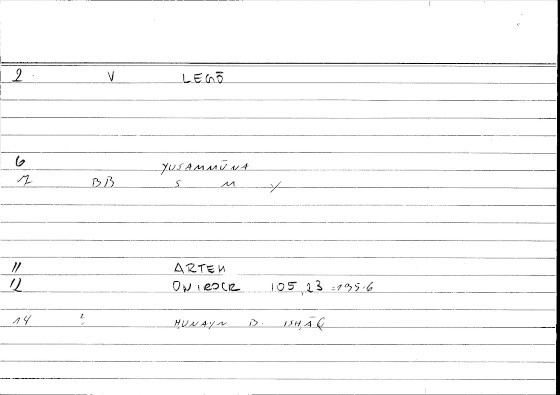 2 V LEGŌ
6 YUSAMMŪNA
7 BB S M Y
11 ARTEM
12 ONIROCR 105,23 = 195.6
14 2 HUNAYN B. ISḤĀQ